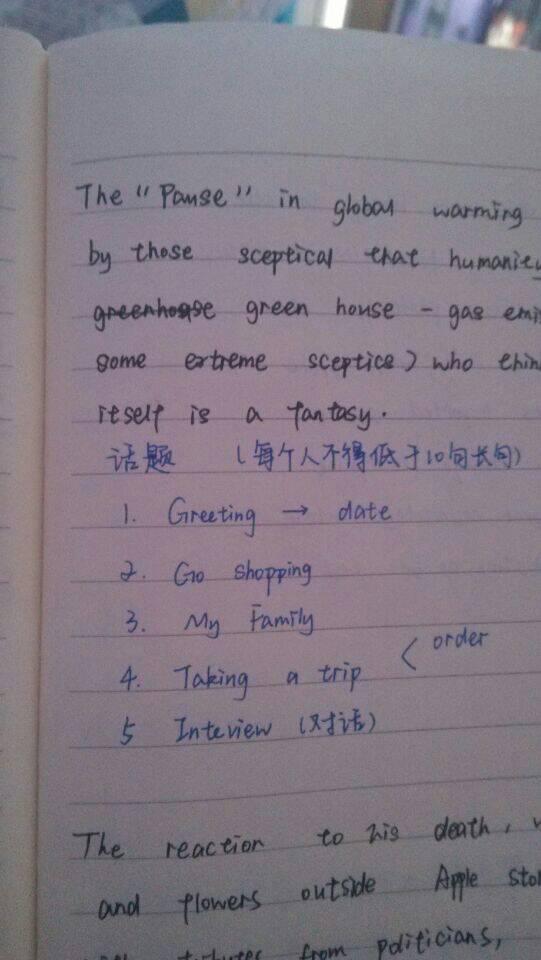 The "Pause" in global warming
by those sceptical that humanity
greenhouse green house - gas emi
some extreme sceptics) who thin
itself is a fantasy.
话题 (每个人不得低于10句长句)
1. Greeting → date
2. Go shopping
3. My Family
4. Taking a trip < order
5 Inteview (对话)
The reaction to his death,
and flowers outside Apple stor
tributes from politicians,